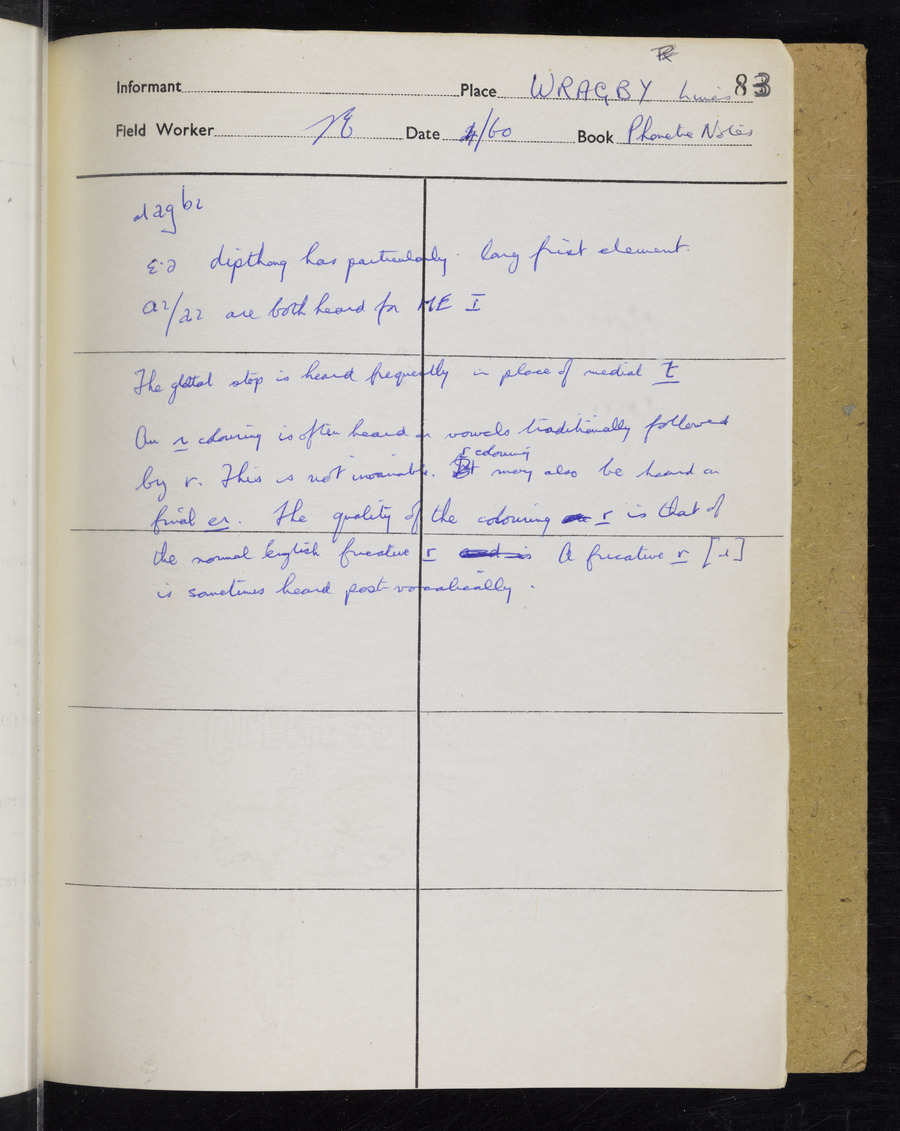 Informant Place WRAGBY Lincs 83
Field Worker Date 4/60 Book Phonetic Notes
ɹagbɪ
ɛ·ə dipthong has particularly long first element.
aɪ/ are both heard for ME I
The glottal stop is heard frequently in place of medial t
An r colouring is often heard on vowels traditionally followed
r colouring
by r. This is not invariable. may also be heard on
final er. The quality of the colouring r is that of
the normal English fricative r and is A fricative r [ɹ]
is sometimes heard post-vocalically.